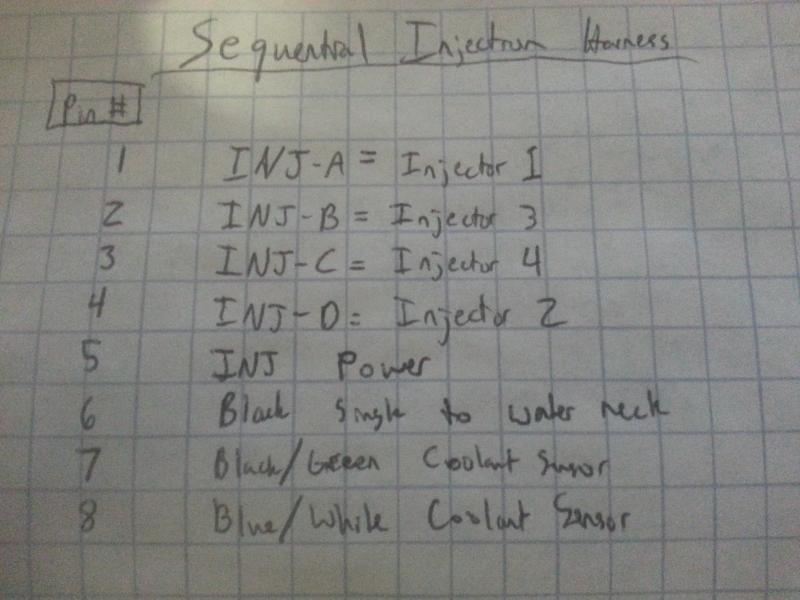 Sequential Injection Harness
Pin #
1 INJ-A = Injector 1
2 INJ-B = Injector 3
3 INJ-C = Injector 4
4 INJ-D = Injector 2
5 INJ Power
6 Black Single to water neck
7 Black/Green Coolant Sensor
8 Blue/White Coolant Sensor